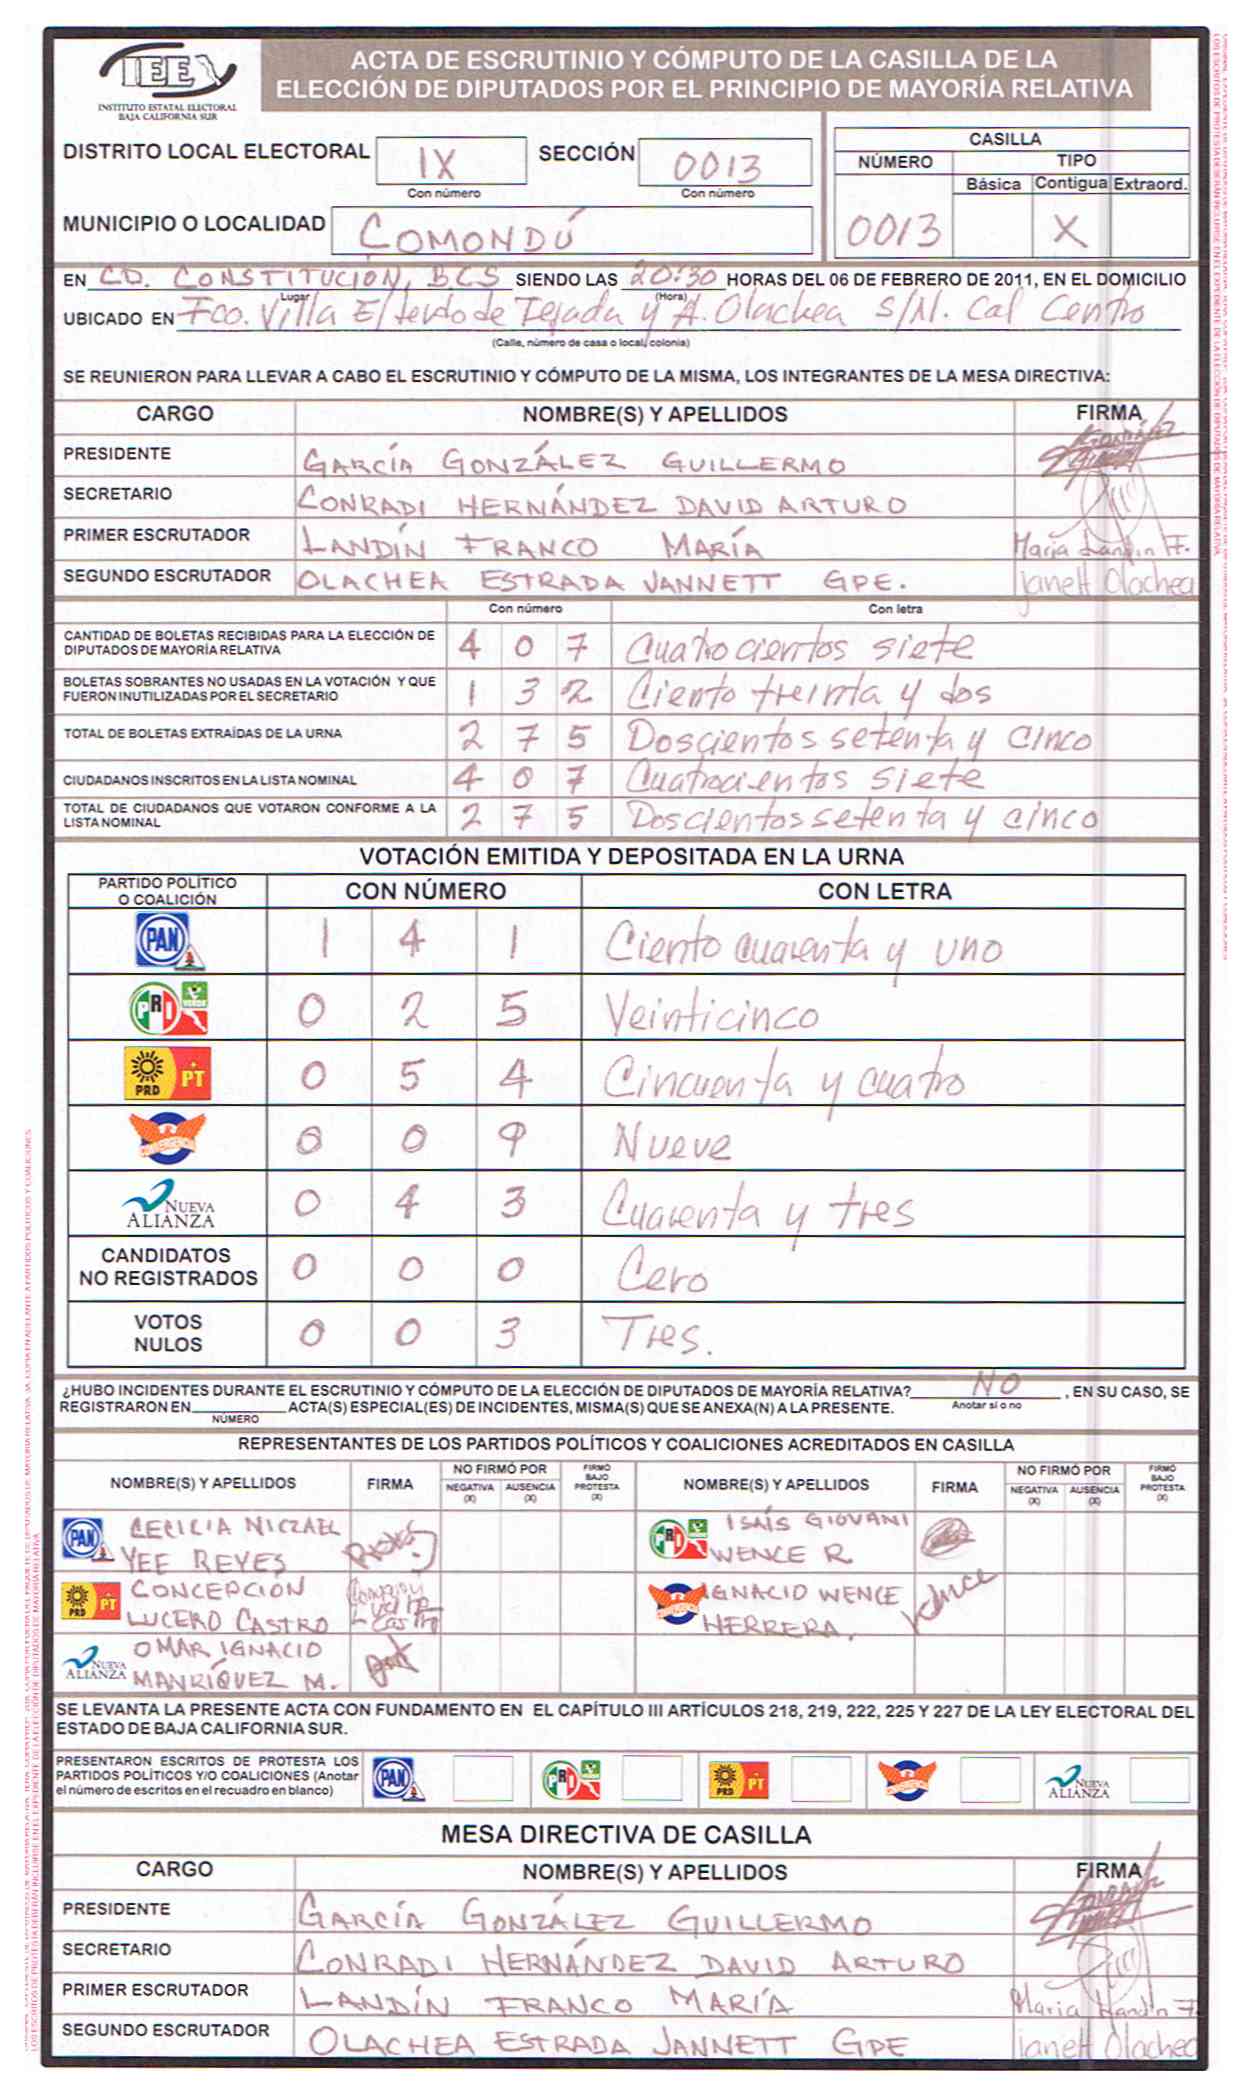 IEE
INSTITUTO ESTATAL ELECTORAL
BAJA CALIFORNIA SUR
ACTA DE ESCRUTINIO Y CÓMPUTO DE LA CASILLA DE LA
ELECCIÓN DE DIPUTADOS POR EL PRINCIPIO DE MAYORÍA RELATIVA
DISTRITO LOCAL ELECTORAL IX SECCIÓN 0013
Con número Con número
CASILLA
NÚMERO TIPO
Básica Contigua Extraord.
0013 X
MUNICIPIO O LOCALIDAD COMONDÚ
EN CD. CONSTITUCIÓN, BCS SIENDO LAS 20:30 HORAS DEL 06 DE FEBRERO DE 2011, EN EL DOMICILIO
Lugar (Hora)
UBICADO EN Fco. Villa E/ Lerdo de Tejada y A. Olachea s/N. Cal Centro
(Calle, número de casa o local, colonia)
SE REUNIERON PARA LLEVAR A CABO EL ESCRUTINIO Y CÓMPUTO DE LA MISMA, LOS INTEGRANTES DE LA MESA DIRECTIVA:
CARGO NOMBRE(S) Y APELLIDOS FIRMA
PRESIDENTE GARCÍA GONZÁLEZ GUILLERMO
SECRETARIO CONRADI HERNÁNDEZ DAVID ARTURO
PRIMER ESCRUTADOR LANDÍN FRANCO MARÍA Maria Landin F.
SEGUNDO ESCRUTADOR OLACHEA ESTRADA JANNETT GPE. Janett Olachea
Con número Con letra
CANTIDAD DE BOLETAS RECIBIDAS PARA LA ELECCIÓN DE
DIPUTADOS DE MAYORÍA RELATIVA 4 0 7 Cuatrocientos siete
BOLETAS SOBRANTES NO USADAS EN LA VOTACIÓN Y QUE
FUERON INUTILIZADAS POR EL SECRETARIO 1 3 2 Ciento treinta y dos
TOTAL DE BOLETAS EXTRAÍDAS DE LA URNA 2 7 5 Doscientos setenta y cinco
CIUDADANOS INSCRITOS EN LA LISTA NOMINAL 4 0 7 Cuatrocientos siete
TOTAL DE CIUDADANOS QUE VOTARON CONFORME A LA
LISTA NOMINAL 2 7 5 Doscientos setenta y cinco
VOTACIÓN EMITIDA Y DEPOSITADA EN LA URNA
PARTIDO POLÍTICO
O COALICIÓN CON NÚMERO CON LETRA
PAN 1 4 1 Ciento cuarenta y uno
PRI VERDE 0 2 5 Veinticinco
PRD PT 0 5 4 Cincuenta y cuatro
CONVERGENCIA 0 0 9 Nueve
NUEVA
ALIANZA 0 4 3 Cuarenta y tres
CANDIDATOS
NO REGISTRADOS 0 0 0 Cero
VOTOS
NULOS 0 0 3 Tres.
¿HUBO INCIDENTES DURANTE EL ESCRUTINIO Y CÓMPUTO DE LA ELECCIÓN DE DIPUTADOS DE MAYORÍA RELATIVA? NO , EN SU CASO, SE
REGISTRARON EN ACTA(S) ESPECIAL(ES) DE INCIDENTES, MISMA(S) QUE SE ANEXA(N) A LA PRESENTE. Anotar si o no
NÚMERO
REPRESENTANTES DE LOS PARTIDOS POLÍTICOS Y COALICIONES ACREDITADOS EN CASILLA
NOMBRE(S) Y APELLIDOS FIRMA NO FIRMÓ POR NEGATIVA (X) AUSENCIA (X) FIRMÓ BAJO PROTESTA (X) NOMBRE(S) Y APELLIDOS FIRMA NO FIRMÓ POR NEGATIVA (X) AUSENCIA (X) FIRMÓ BAJO PROTESTA (X)
PAN CECILIA
YEE REYES
PRI VERDE ISAÍS GIOVANI
WENCE R
PRD PT CONCEPCIÓN
LUCERO CASTRO
CONVERGENCIA IGNACIO WENCE
HERRERA. Wence
NUEVA ALIANZA OMAR IGNACIO
MANRÍQUEZ M.
SE LEVANTA LA PRESENTE ACTA CON FUNDAMENTO EN EL CAPÍTULO III ARTÍCULOS 218, 219, 222, 225 Y 227 DE LA LEY ELECTORAL DEL
ESTADO DE BAJA CALIFORNIA SUR.
PRESENTARON ESCRITOS DE PROTESTA LOS
PARTIDOS POLÍTICOS Y/O COALICIONES (Anotar
el número de escritos en el recuadro en blanco) PAN PRI VERDE PRD PT CONVERGENCIA NUEVA ALIANZA
MESA DIRECTIVA DE CASILLA
CARGO NOMBRE(S) Y APELLIDOS FIRMA
PRESIDENTE GARCÍA GONZÁLEZ GUILLERMO
SECRETARIO CONRADI HERNÁNDEZ DAVID ARTURO
PRIMER ESCRUTADOR LANDÍN FRANCO MARÍA Maria Landin F.
SEGUNDO ESCRUTADOR OLACHEA ESTRADA JANNETT GPE Janett Olachea